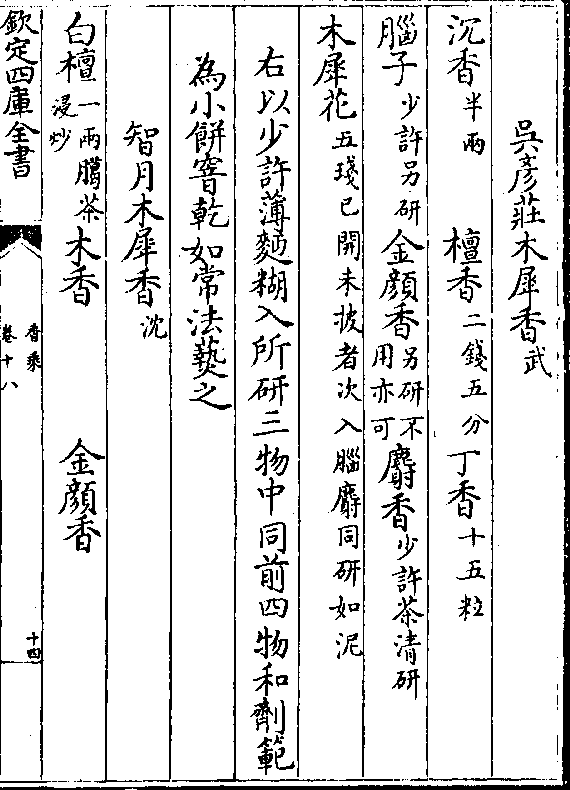 吳彥莊木犀香武
沉香半兩　檀香二錢五分　丁香十五粒
腦子少許另研　金顏香另研不用亦可　麝香少許茶清研
木犀花五琖已開未披者次入腦麝同研如泥
右以少許薄麪糊入所研三物中同前四物和劑範
為小餅窨乾如常法爇之
智月木犀香沈
白檀一兩臈茶浸炒　木香　金顏香
欽定四庫全書
香乘
卷十八
十四